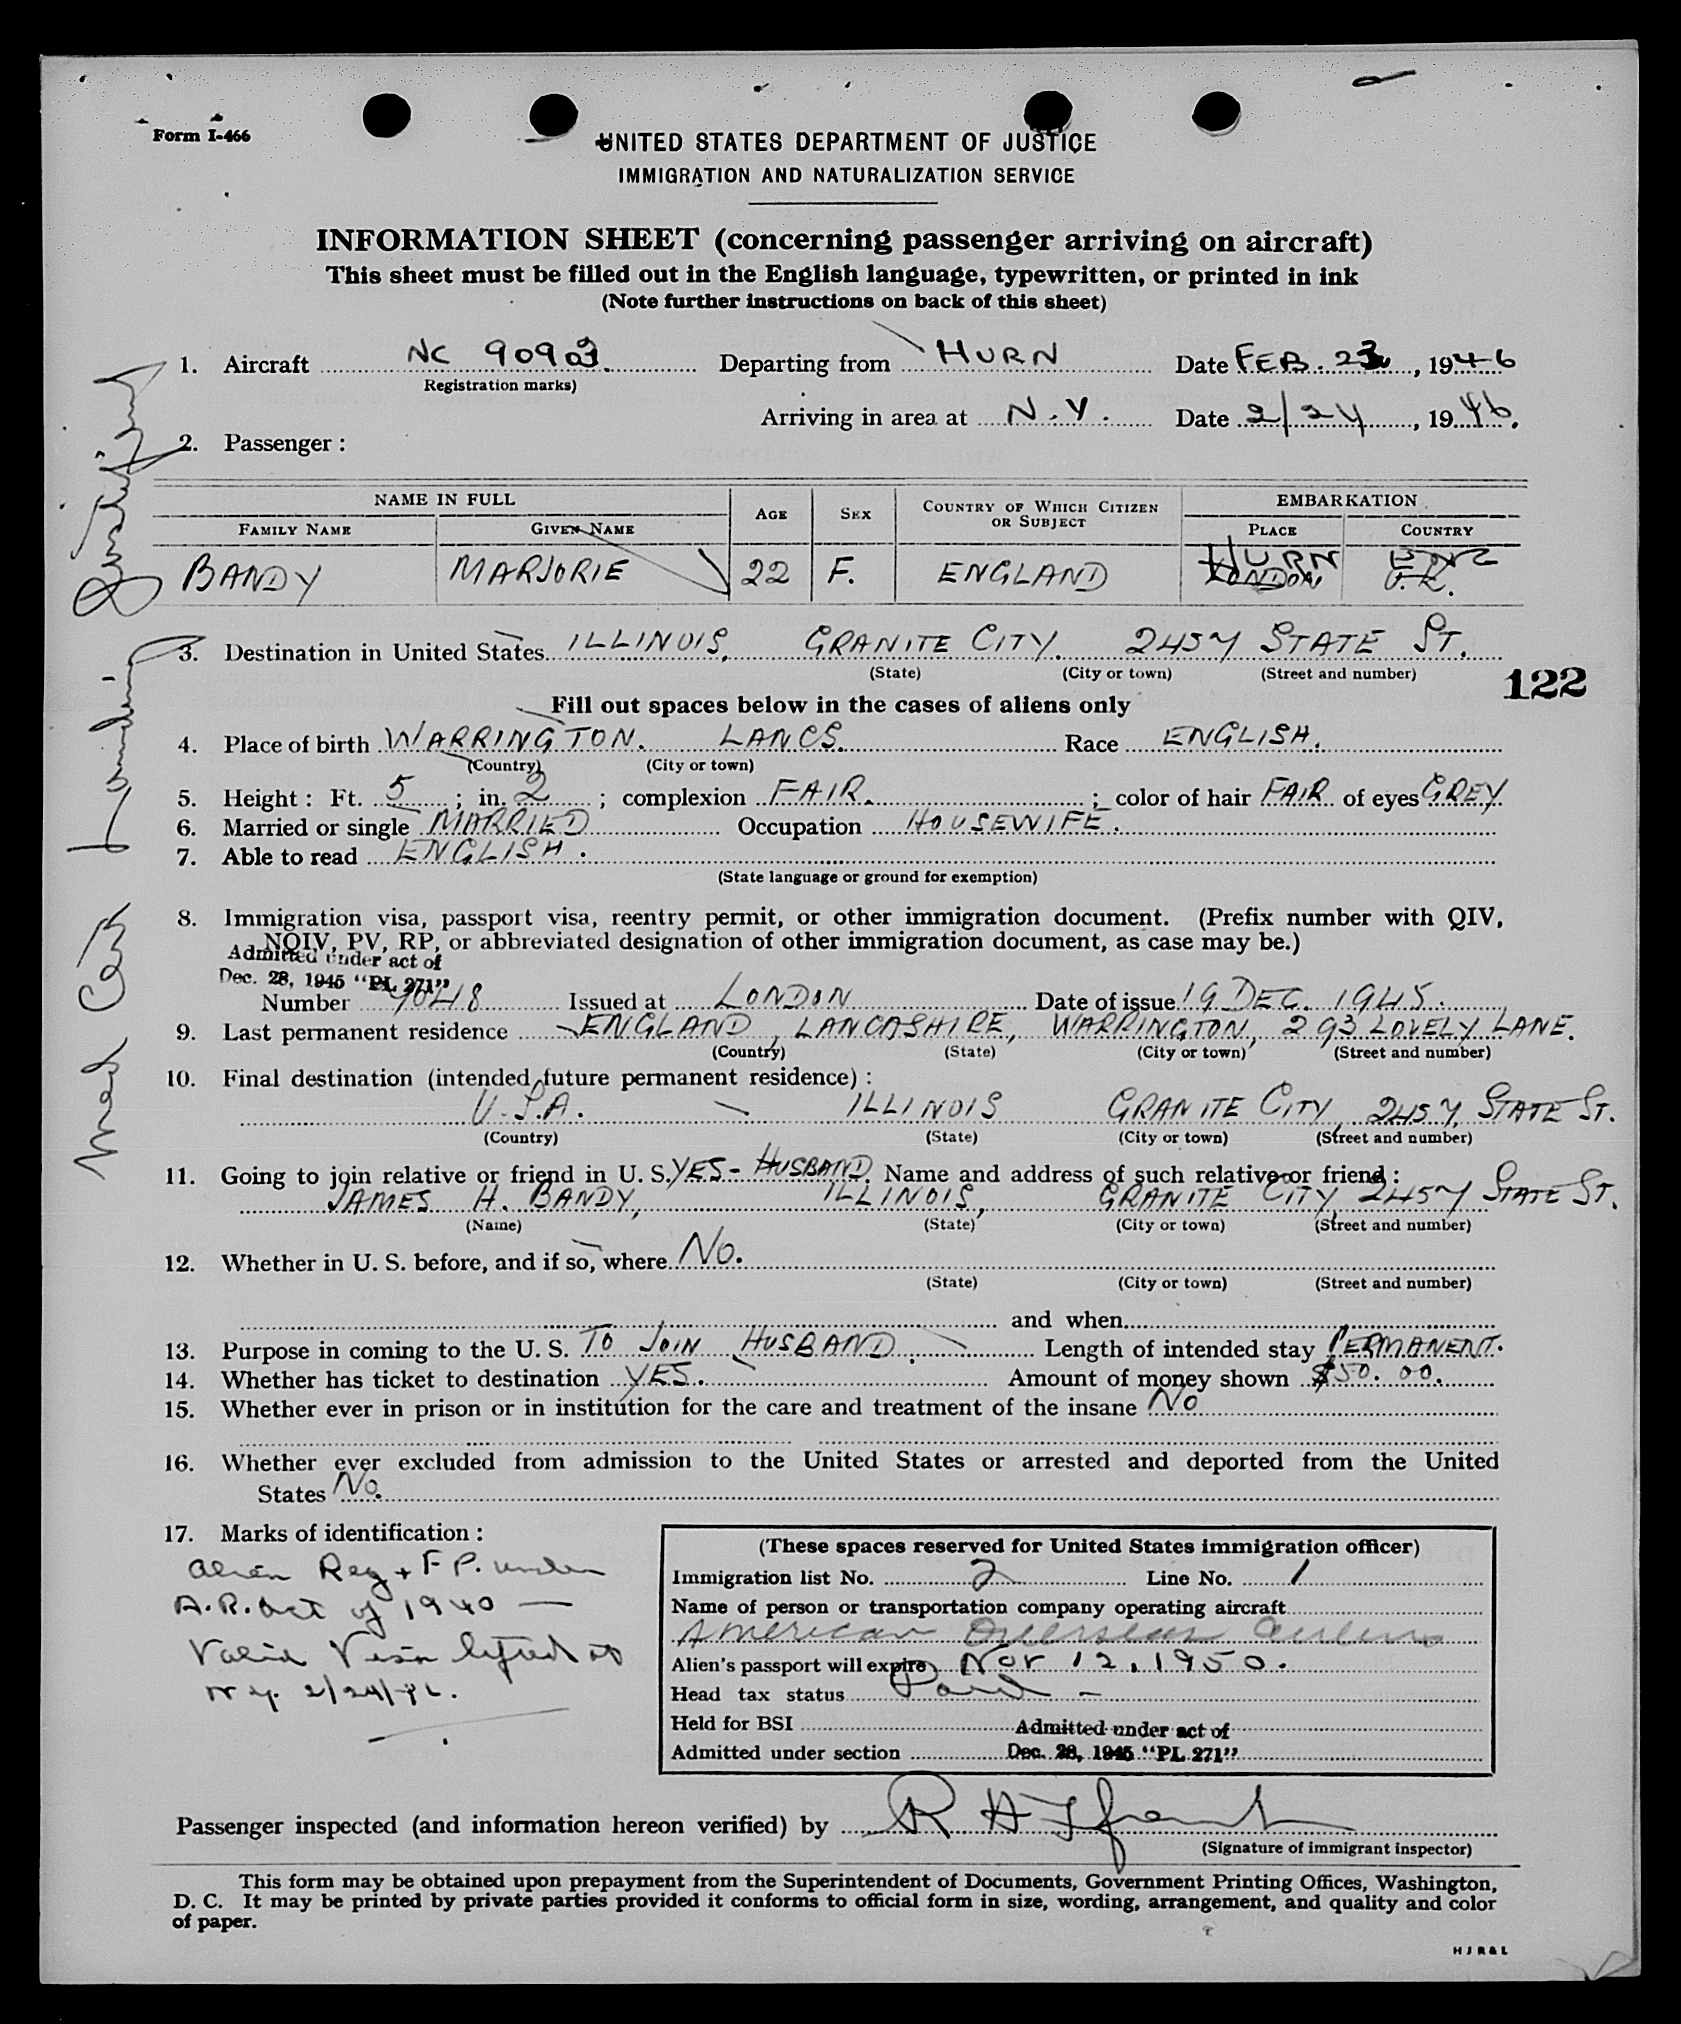 Form I-466
UNITED STATES DEPARTMENT OF JUSTICE
IMMIGRATION AND NATURALIZATION SERVICE
INFORMATION SHEET (concerning passenger arriving on aircraft)
This sheet must be filled out in the English language, typewritten, or printed in ink
(Note further instructions on back of this sheet)
1. Aircraft NC 90903 Departing from HURN Date FEB. 23, 1946
(Registration marks)
Arriving in area at N.Y. Date 2/24, 1946.
2. Passenger:
NAME IN FULL AGE SEX COUNTRY OF WHICH CITIZEN OR SUBJECT EMBARKATION
FAMILY NAME GIVEN NAME PLACE COUNTRY
HURN ENG
BANDY MARJORIE 22 F. ENGLAND LONDON U.K.
3. Destination in United States ILLINOIS, GRANITE CITY. 2457 STATE ST.
(State) (City or town) (Street and number)
122
Fill out spaces below in the cases of aliens only
4. Place of birth WARRINGTON. LANCS. Race ENGLISH.
(Country) (City or town)
5. Height: Ft. 5; in. 2; complexion FAIR.; color of hair FAIR of eyes GREY
6. Married or single MARRIED Occupation HOUSEWIFE.
7. Able to read ENGLISH.
(State language or ground for exemption)
8. Immigration visa, passport visa, reentry permit, or other immigration document. (Prefix number with QIV,
NQIV, PV, RP, or abbreviated designation of other immigration document, as case may be.)
Admitted under act of
Dec. 28, 1945 "PL 271"
Number 7048 Issued at LONDON Date of issue 19 DEC. 1945.
9. Last permanent residence ENGLAND, LANCASHIRE, WARRINGTON, 293 LOVELY LANE.
(Country) (State) (City or town) (Street and number)
10. Final destination (intended future permanent residence):
U.S.A. ILLINOIS GRANITE CITY, 2457, STATE ST.
(Country) (State) (City or town) (Street and number)
11. Going to join relative or friend in U. S. YES - HUSBAND. Name and address of such relative or friend:
JAMES H. BANDY, ILLINOIS, GRANITE CITY, 2457 STATE ST.
(Name) (State) (City or town) (Street and number)
12. Whether in U. S. before, and if so, where NO.
(State) (City or town) (Street and number)
and when
13. Purpose in coming to the U. S. TO JOIN HUSBAND. Length of intended stay PERMANENT.
14. Whether has ticket to destination YES. Amount of money shown $50.00.
15. Whether ever in prison or in institution for the care and treatment of the insane NO
16. Whether ever excluded from admission to the United States or arrested and deported from the United
States NO.
17. Marks of identification:
Alien Reg + F P. under
A.R. Act of 1940 —
Valid Visa lifted at
N Y. 2/24/46.
(These spaces reserved for United States immigration officer)
Immigration list No. 2 Line No. 1
Name of person or transportation company operating aircraft
American Overseas Airlines
Alien's passport will expire Nov 12, 1950.
Head tax status Paid -
Held for BSI
Admitted under act of
Admitted under section Dec. 28, 1945 "PL 271"
Passenger inspected (and information hereon verified) by
(Signature of immigrant inspector)
This form may be obtained upon prepayment from the Superintendent of Documents, Government Printing Offices, Washington,
D. C. It may be printed by private parties provided it conforms to official form in size, wording, arrangement, and quality and color
of paper.
H J R & L